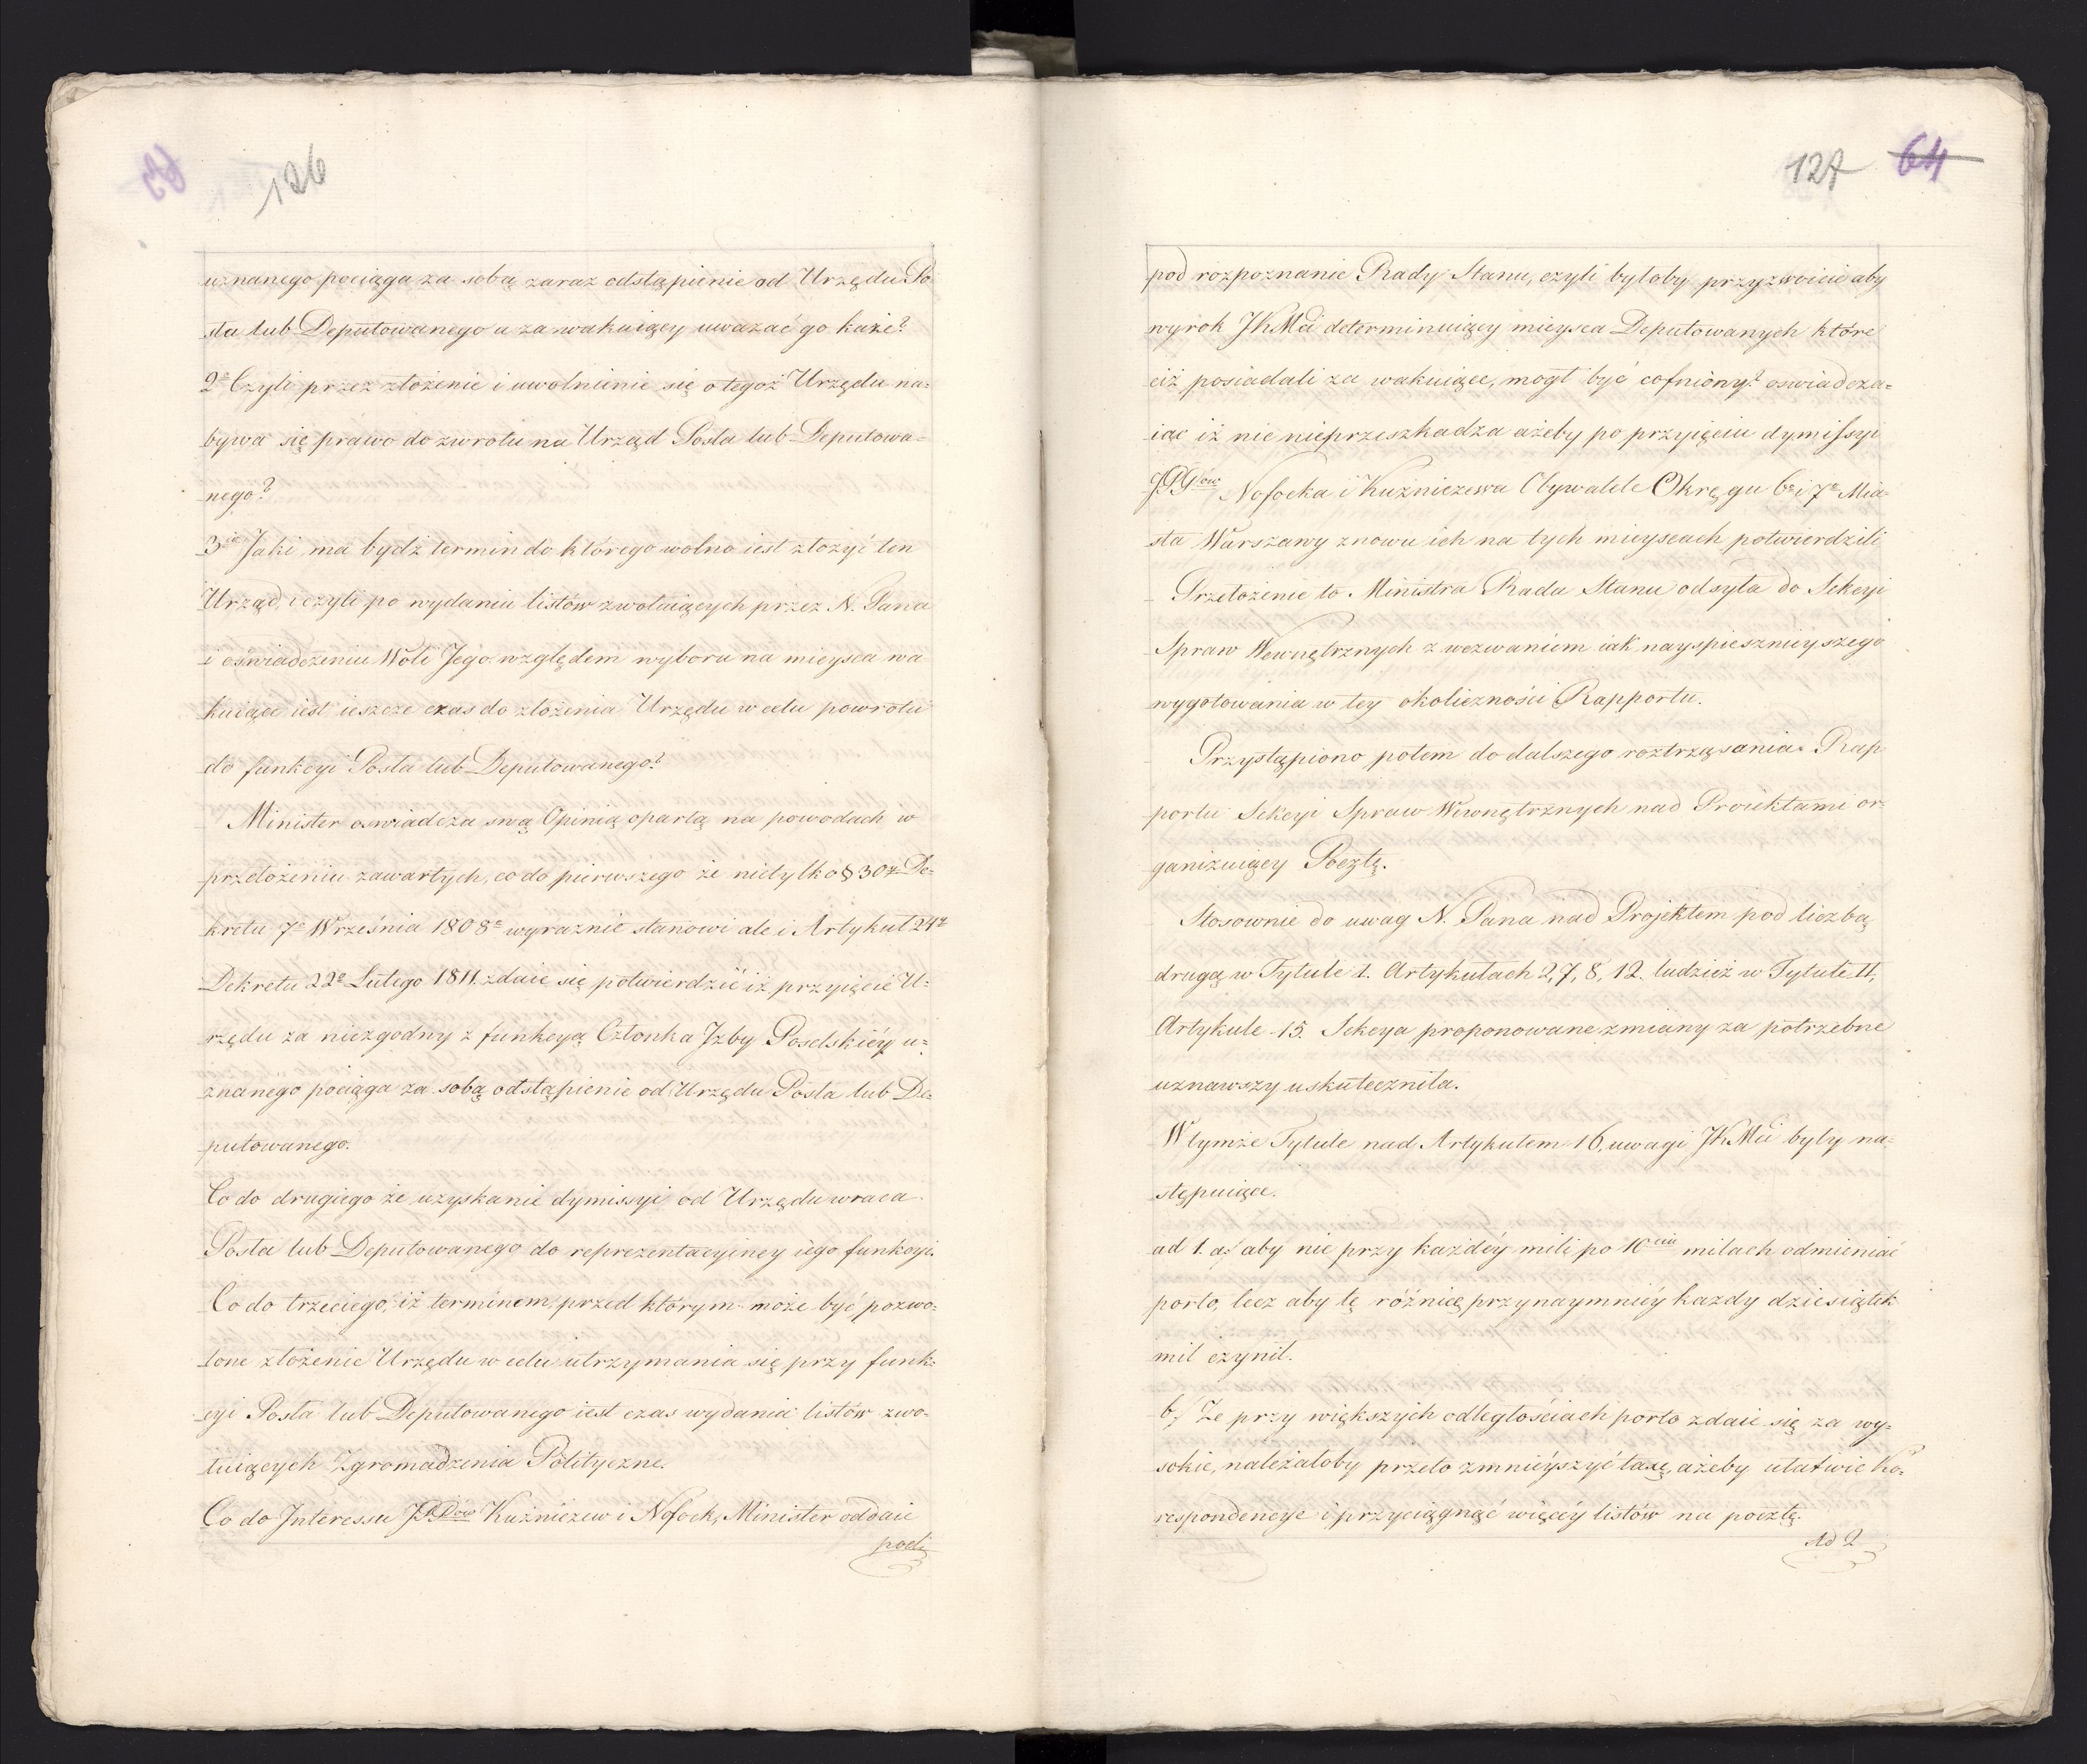 126
uznanego pociąga za sobą zaraz odstąpienie od Urzędu Po
sła lub Deputowanego a za wakuiący uważać go każe?
2e Czyli przez złożenie i uwolnienie się o tegoż Urzędu na=
bywa się prawo do zwrotu na Urząd Posła lub Deputowa=
nego?
3cie Jaki ma bydź termin do którego wolno iest złożyć ten
Urząd, czyli po wydaniu listów zwołuiących przez N. Pana
i oświadczeniu Woli Jego względem wyboru na mieysca wa
kuiące iest ieszcze czas do złożenia Urzędu w celu powrotu
do funkcyi Posła lub Deputowanego?
Minister oświadcza swą Opinią opartą na powodach w
przełożeniu zawartych, co do pierwszego że nietylko § 30ty De=
kretu 7e Września 1808e wyraznie stanowi ale i Artykuł 24ty
Dekretu 22e Lutego 1811. zdaie się potwierdzić iż przyięcie U=
rzędu za niezgodny z funkcyą Członka Jzby Poselskiéy u=
znanego pociąga za sobą odstąpienie od Urzędu Posła lub De=
putowanego.
Co do drugiego że uzyskanie dymissyi od Urzędu wraca
Posła lub Deputowanego do reprezentacyiney iego funkcyi.
Co do trzeciego, iż terminem, przed którym może być pozwo=
lone złożenie Urzędu w celu utrzymania się przy funk=
cyi Posła lub Deputowanego iest czas wydania listów zwo=
łuiących Zgromadzenia Polityczne.
Co do Jnteressu JPPów Kuźniczew i Nofock, Minister oddaie
pod
127 64
pod rozpoznanie Rady Stanu, czyli byłoby przyzwoicie aby
wyrok JKMci determinuiący mieysca Deputowanych które
ciż posiadali za wakuiące, mogł być cofniony? oswiadcza=
iąc iż nie nieprzeszkadza ażeby po przyięciu dymissyi
JPPów Nofocka i Kuźniczewa Obywatele Okręgu 6e i 7e Mia=
sta Warszawy znowu ich na tych mieyscach potwierdzili
Przełożenie to Ministra Rada Stanu odsyła do Sekcyi
Spraw Wewnętrznych z wezwaniem iak nayspieszniéyszego
wygotowania w tey okoliczności Rapportu.
Przystąpiono potem do dalszego roztrząsania Rap
portu Sekcyi Spraw Wewnętrznych nad Proiektami or=
ganizuiący Pocztę.
Stosownie do uwag N. Pana nad Projektem pod liczbą
drugą w Tytule 1. Artykułach 2, 7, 8, 12. tudzież w Tytule II,
Artykule 15. Sekcya proponowane zmiany za potrzebne
uznawszy uskuteczniła.
W tymże Tytule nad Artykułem 16, uwagi JKMci były na=
stępuiące.
ad 1. a/ aby nie przy każdéy mili po 10ciu milach odmieniać
porto, lecz aby tę różnicę przynaymniéy kazdy dziesiątek
mil czynił.
b/ Że przy większych odległościach porto zdaie się za wy=
sokie, należałoby przeto zmniéyszyć taxę, ażeby ułatwic ko=
respondencye i przyciągnąć więcéy listów na pocztę.
Ad 2